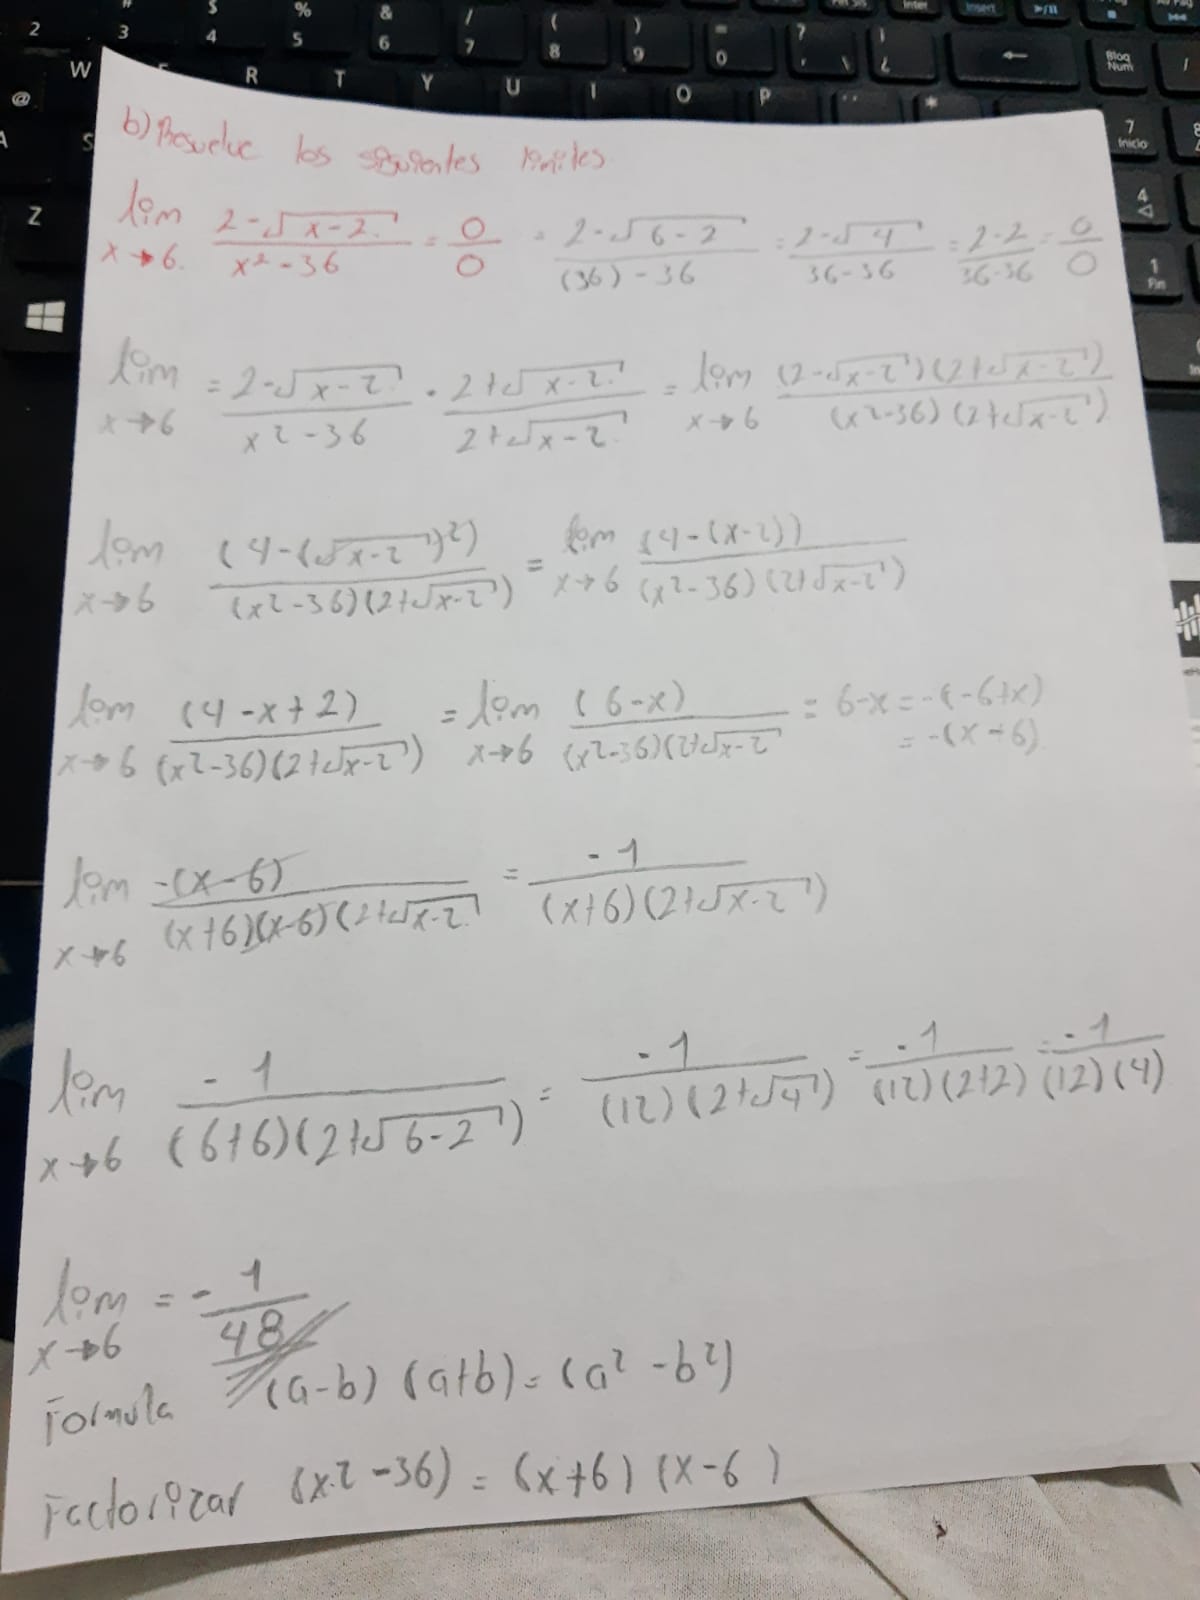 2 3 $ 4 % 5 & 6 / 7 ( 8 ) 9 = 0 ? ' \ ¿ Insert
W R T Y U I O P Bloq Num /
@
A S * 7 Inicio
Z 4
1 Fin
b) Resuelve los siguientes limites.
lim x→6. 2-√x-2 / x²-36 = 0/0 = 2-√6-2 / (36)-36 = 2-√4 / 36-36 = 2-2 / 36-36 = 0/0
lim x→6 = 2-√x-2 / x²-36 . 2+√x-2 / 2+√x-2 = lim x→6 (2-√x-2)(2+√x-2) / (x²-36)(2+√x-2)
lim x→6 (4-(√x-2)²) / (x²-36)(2+√x-2) = lim x→6 (4-(x-2)) / (x²-36)(2+√x-2)
lim x→6 (4-x+2) / (x²-36)(2+√x-2) = lim x→6 (6-x) / (x²-36)(2+√x-2 = 6-x = -(-6+x)
= -(x-6)
lim x→6 -(x-6) / (x+6)(x-6)(2+√x-2 = -1 / (x+6)(2+√x-2)
lim x→6 -1 / (6+6)(2+√6-2) = -1 / (12)(2+√4) = -1 / (12)(2+2) = -1 / (12)(4)
lim x→6 = - 1/48
Formula (a-b)(a+b) = (a²-b²)
Factorizar (x²-36) = (x+6)(x-6)